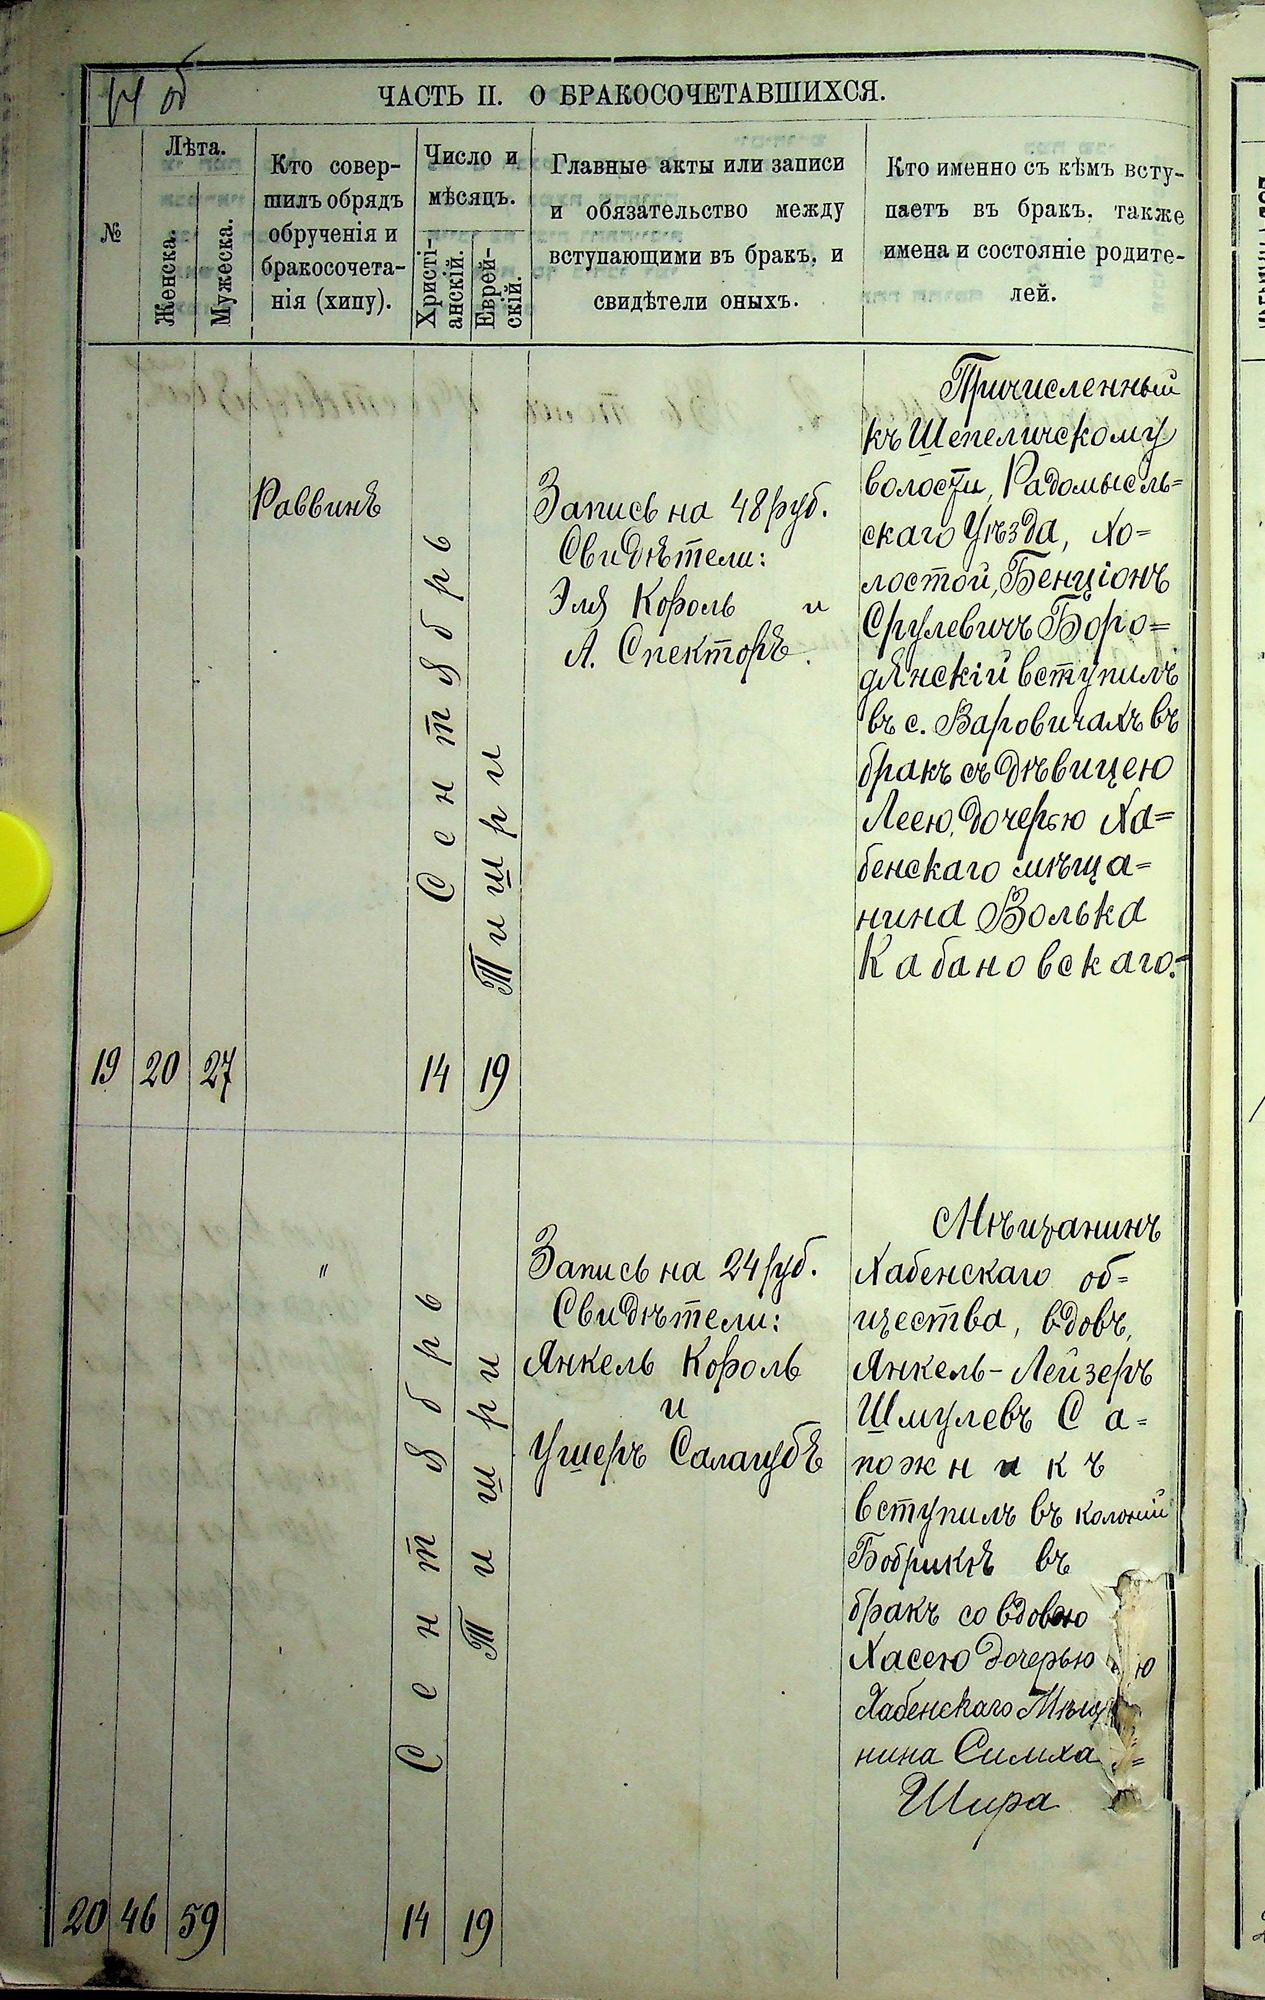 об
ЧАСТЬ II. О БРАКОСОЧЕТАВШИХСЯ.
№
Лѣта.
Женска.
Мужеска.
Кто совер-
шилъ обрядъ
обрученія и
бракосочета-
нія (хипу).
Число и
мѣсяцъ.
Христі-
анскій.
Еврей-
скій.
Главные акты или записи
и обязательство между
вступающими въ бракъ, и
свидѣтели оныхъ.
Кто именно съ кѣмъ всту-
паетъ въ бракъ, также
имена и состояніе родите-
лей.
19
20
27
Раввинъ
Сентябрь
14
Тишри
19
Запись на 48 руб.
Свидѣтели:
Эля Король и
А. Спекторъ.
Причисленный
къ Шепеличскому
волости, Радомысль=
скаго Уѣзда, хо=
лостой, Бенціонъ
Срулевичъ Боро=
дянскій вступилъ
въ с. Варовичахъ въ
бракъ съ дѣвицею
Леею, дочерью Ха=
бенскаго мѣща=
нина Волька
Кабановскаго.
20
46
59
"
Сентябрь
14
Тишри
19
Запись на 24 руб.
Свидѣтели:
Янкель Король
и
Ушеръ Салагубъ
Мѣщанинъ
Хабенскаго об=
щества, вдовъ,
Янкель-Лейзеръ
Шмулевъ Са=
пожникъ
вступилъ въ колоніи
Бобрикѣ въ
бракъ со вдовою
Хасею дочерью ю
Хабенскаго Мѣщ
нина Симха =
Шира